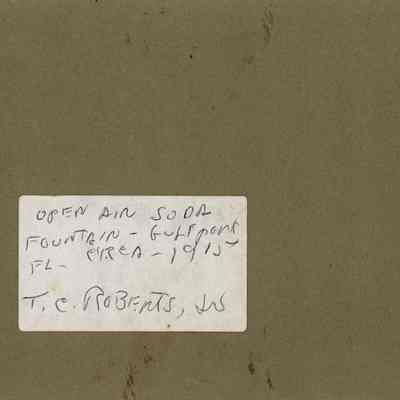 OPEN AIR SODA
FOUNTAIN - GULFPORT
FL - CIRCA - 1915
T. C. ROBERTS,